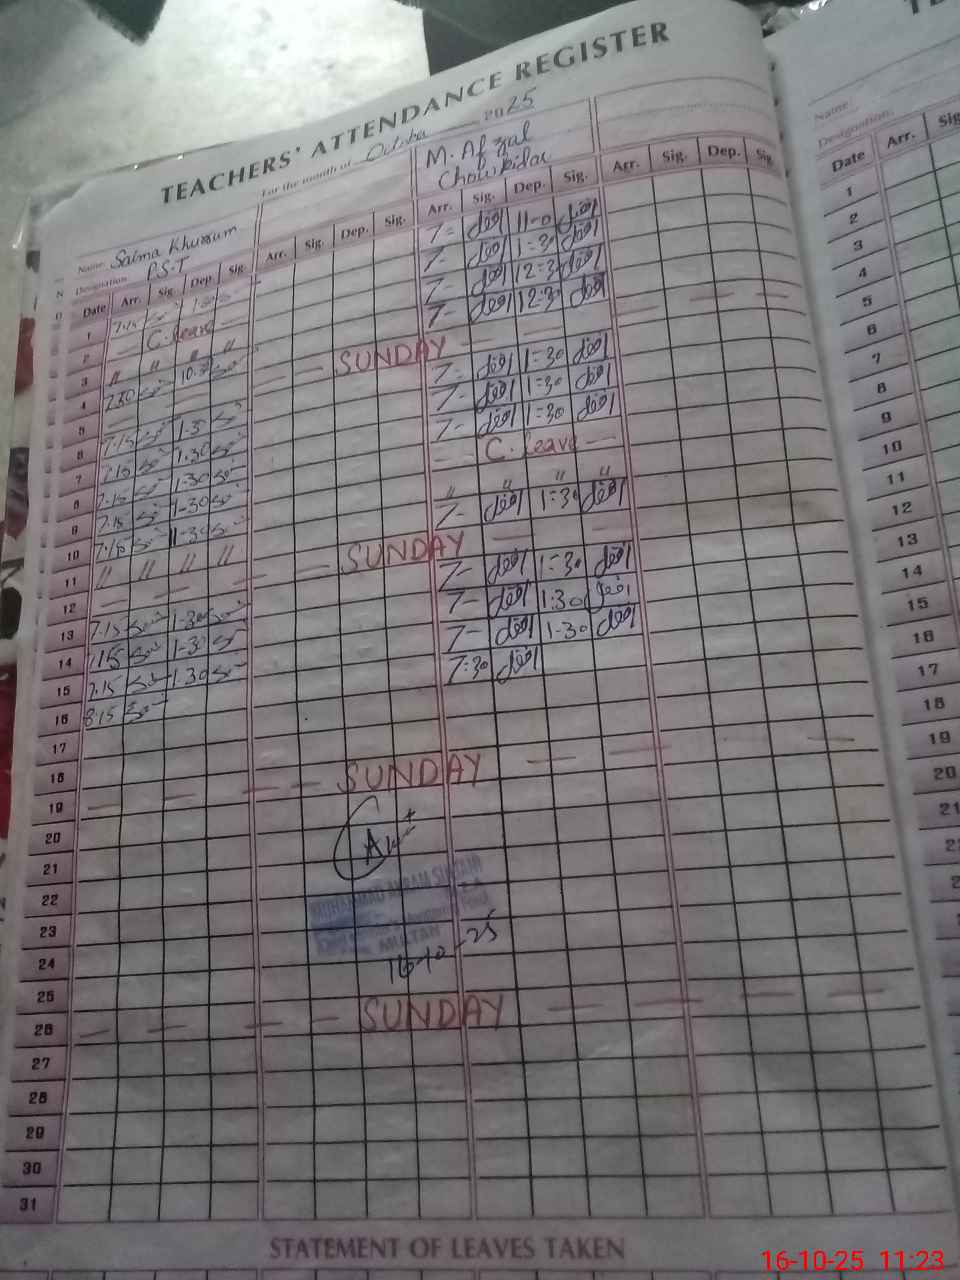 TEACHERS' ATTENDANCE REGISTER
For the month of October 2025
Name: Salma Khursum
Designation P.S.T
M. Afzal
Chowkidar
Date Arr. Sig. Dep. Sig. Arr. Sig. Dep. Sig. Arr. Sig. Dep. Sig. Arr. Sig. Dep. Sig.
1 7.15 7- 11-0
2 C. leave 7- 1-30
3 " " " " 7- 12:30
4 7.30 10.30 7- 12:30
5 SUNDAY
6 7.15 1-30 7- 1=30
7 7.15 1.30 7- 1:30
8 7.15 1-30 7- 1=30
9 7.15 1-30 C. leave
10 7.15 11-30 " " " "
11 " " " " 7- 1=30
12 SUNDAY
13 7.15 1-30 7- 1=30
14 7.15 1-30 7- 1:30
15 7.15 1.30 7- 1-30
16 8.15 7:30
17
18
19 SUNDAY
20
21
22
MUHAMMAD AKRAM
23
MULTAN
24
16-10-25
25
26 SUNDAY
27
28
29
30
31
STATEMENT OF LEAVES TAKEN
Name:
Designation:
Date Arr. Sig
1
2
3
4
5
6
7
8
9
10
11
12
13
14
15
16
17
18
19
20
21
16-10-25 11:23